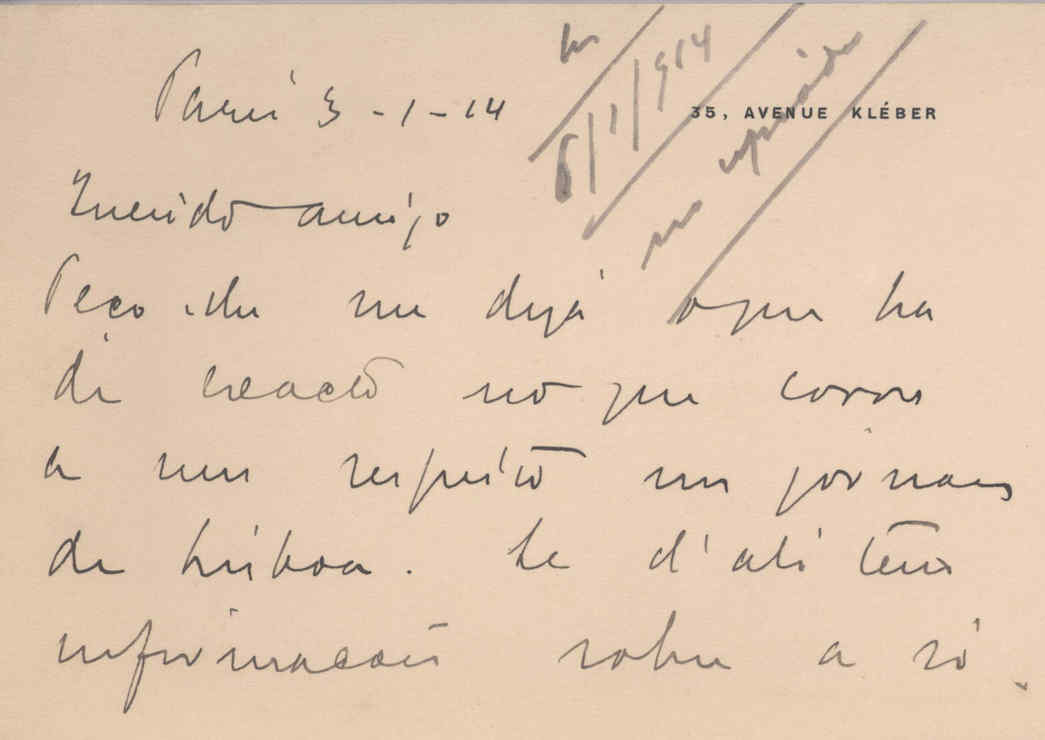 Paris 3-1-14
6/1/914
35, AVENUE KLÉBER
Querido amigo
Peço-lhe me diga o que ha
de exacto no que corre
a meu respeito nos jornaes
de Lisboa. Se d'ali tem
informacões sobre a si-